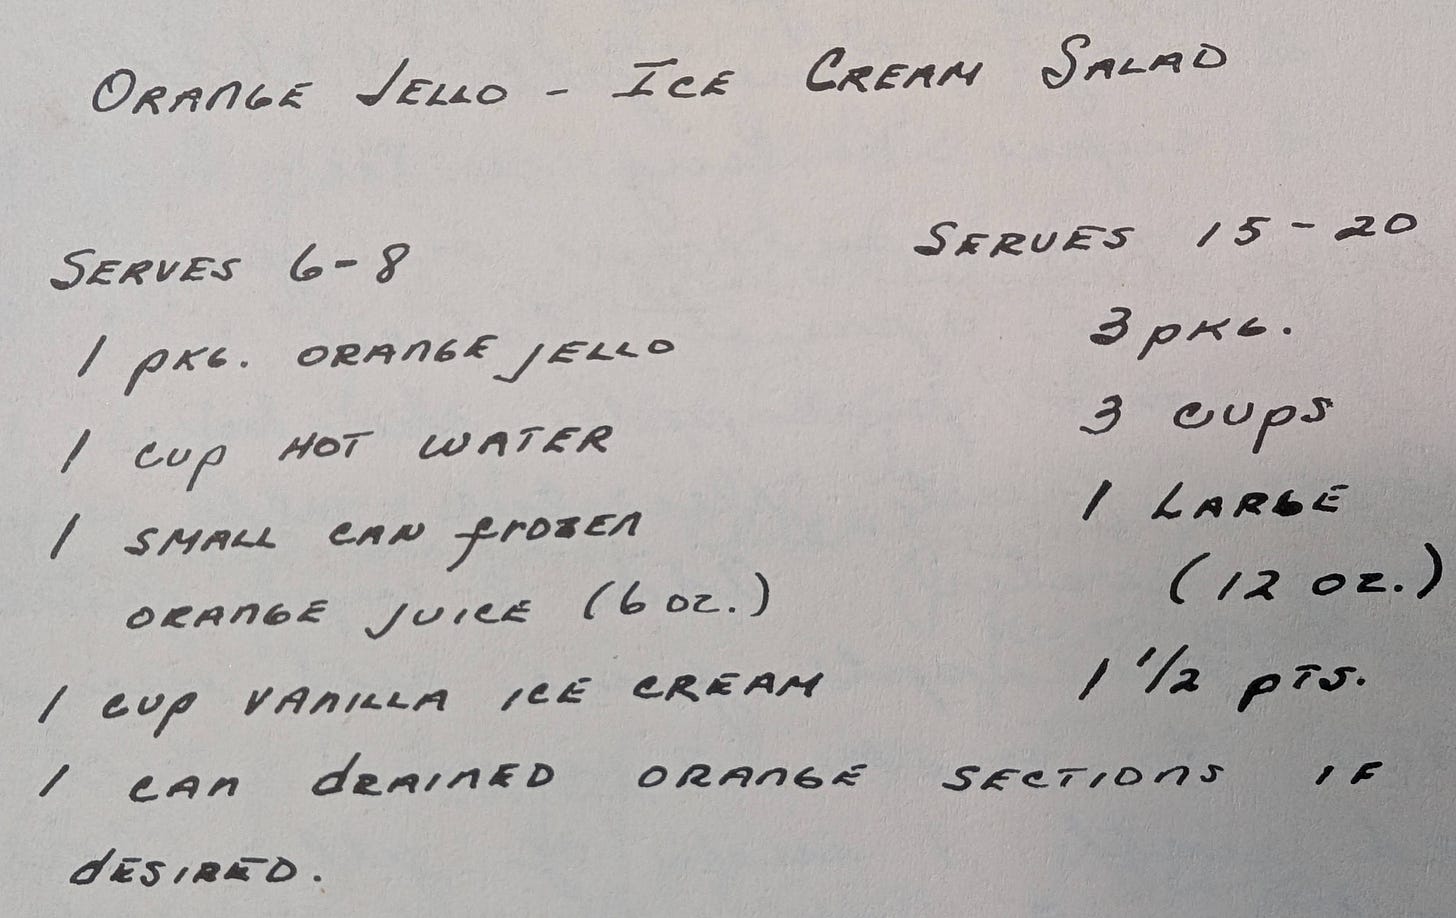 ORANGE JELLO - ICE CREAM SALAD
SERVES 6-8 SERVES 15-20
1 PKG. ORANGE JELLO 3 PKG.
1 CUP HOT WATER 3 CUPS
1 SMALL CAN frozen 1 LARGE
ORANGE JUICE (6 OZ.) (12 OZ.)
1 CUP VANILLA ICE CREAM 1 1/2 PTS.
1 CAN dRAINED ORANGE SECTIONS IF
dESIRED.